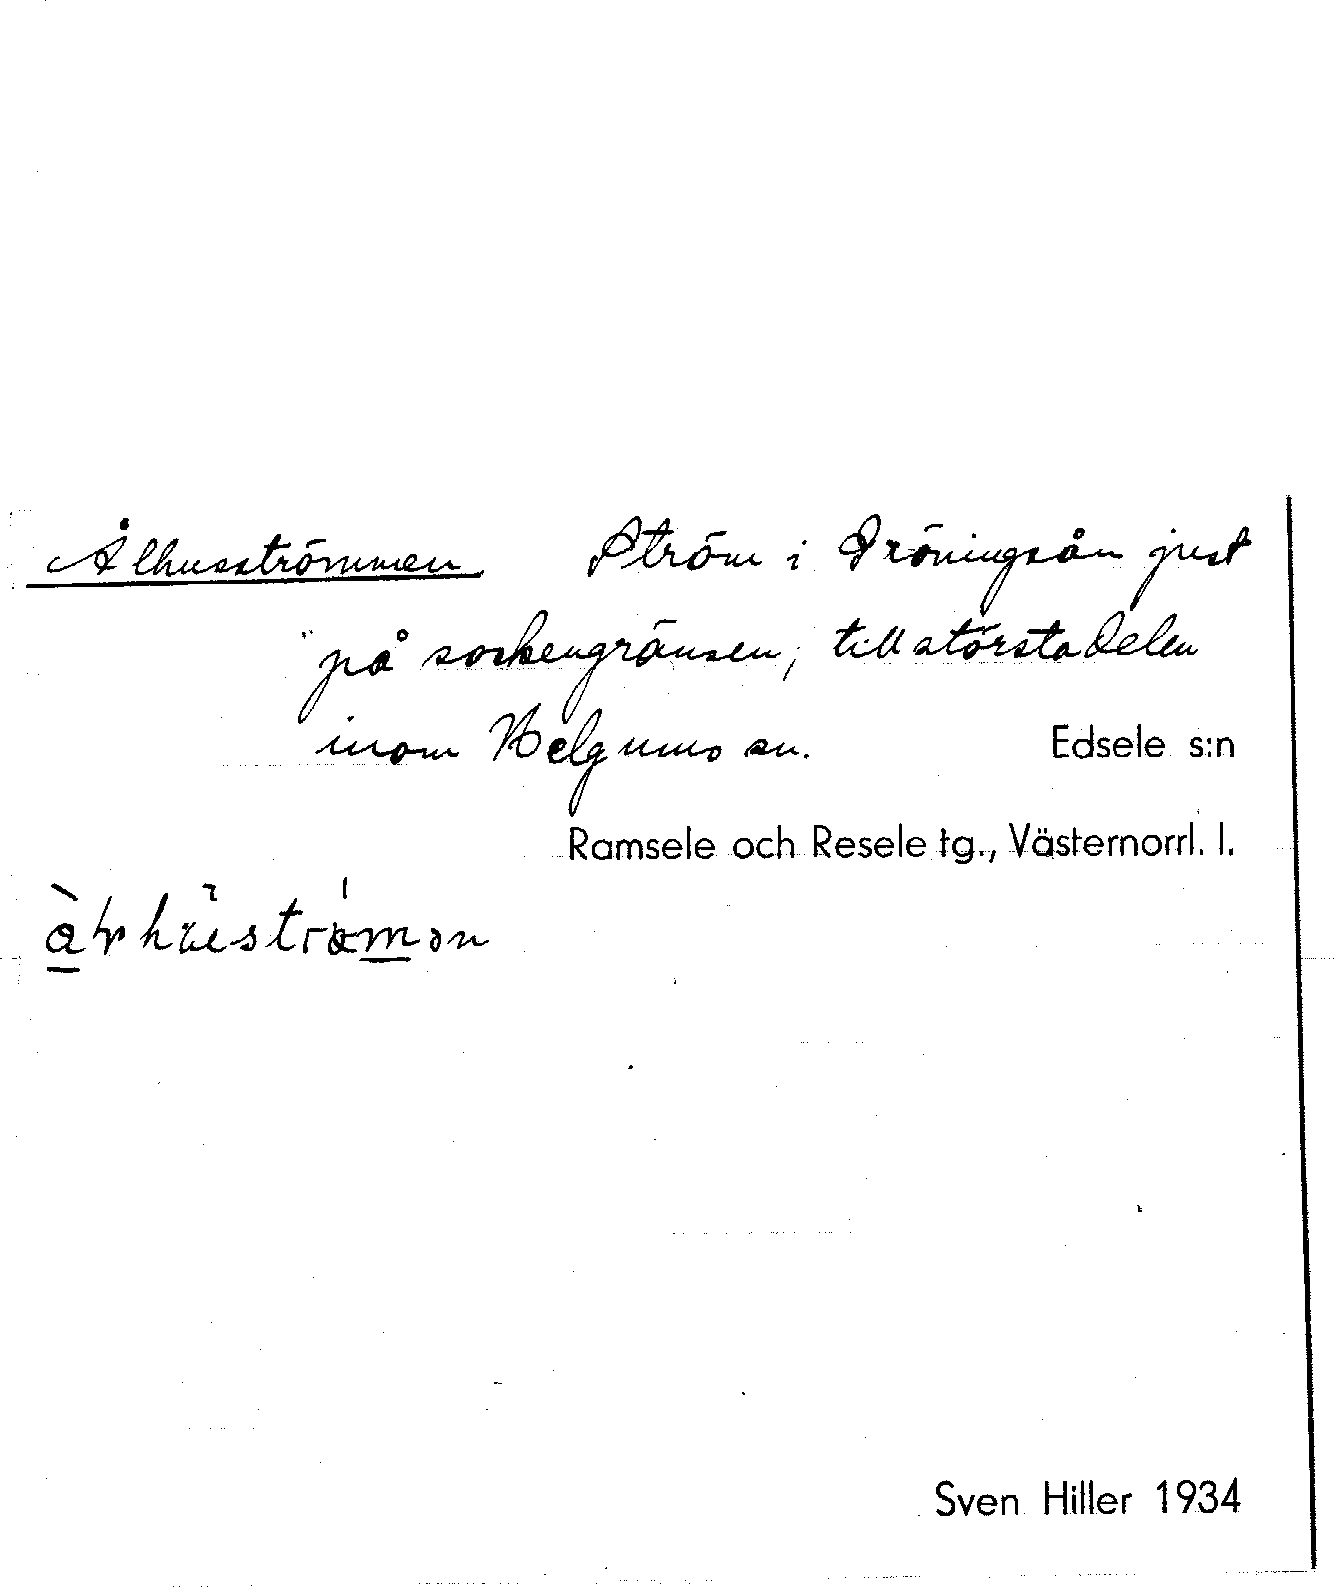 Ålhusströmmen Ström i Dröningsån just
på sockengränsen, till största delen
inom Helgums sn. Edsele s:n
Ramsele och Resele tg., Västernorrl. l.
Sven Hiller 1934